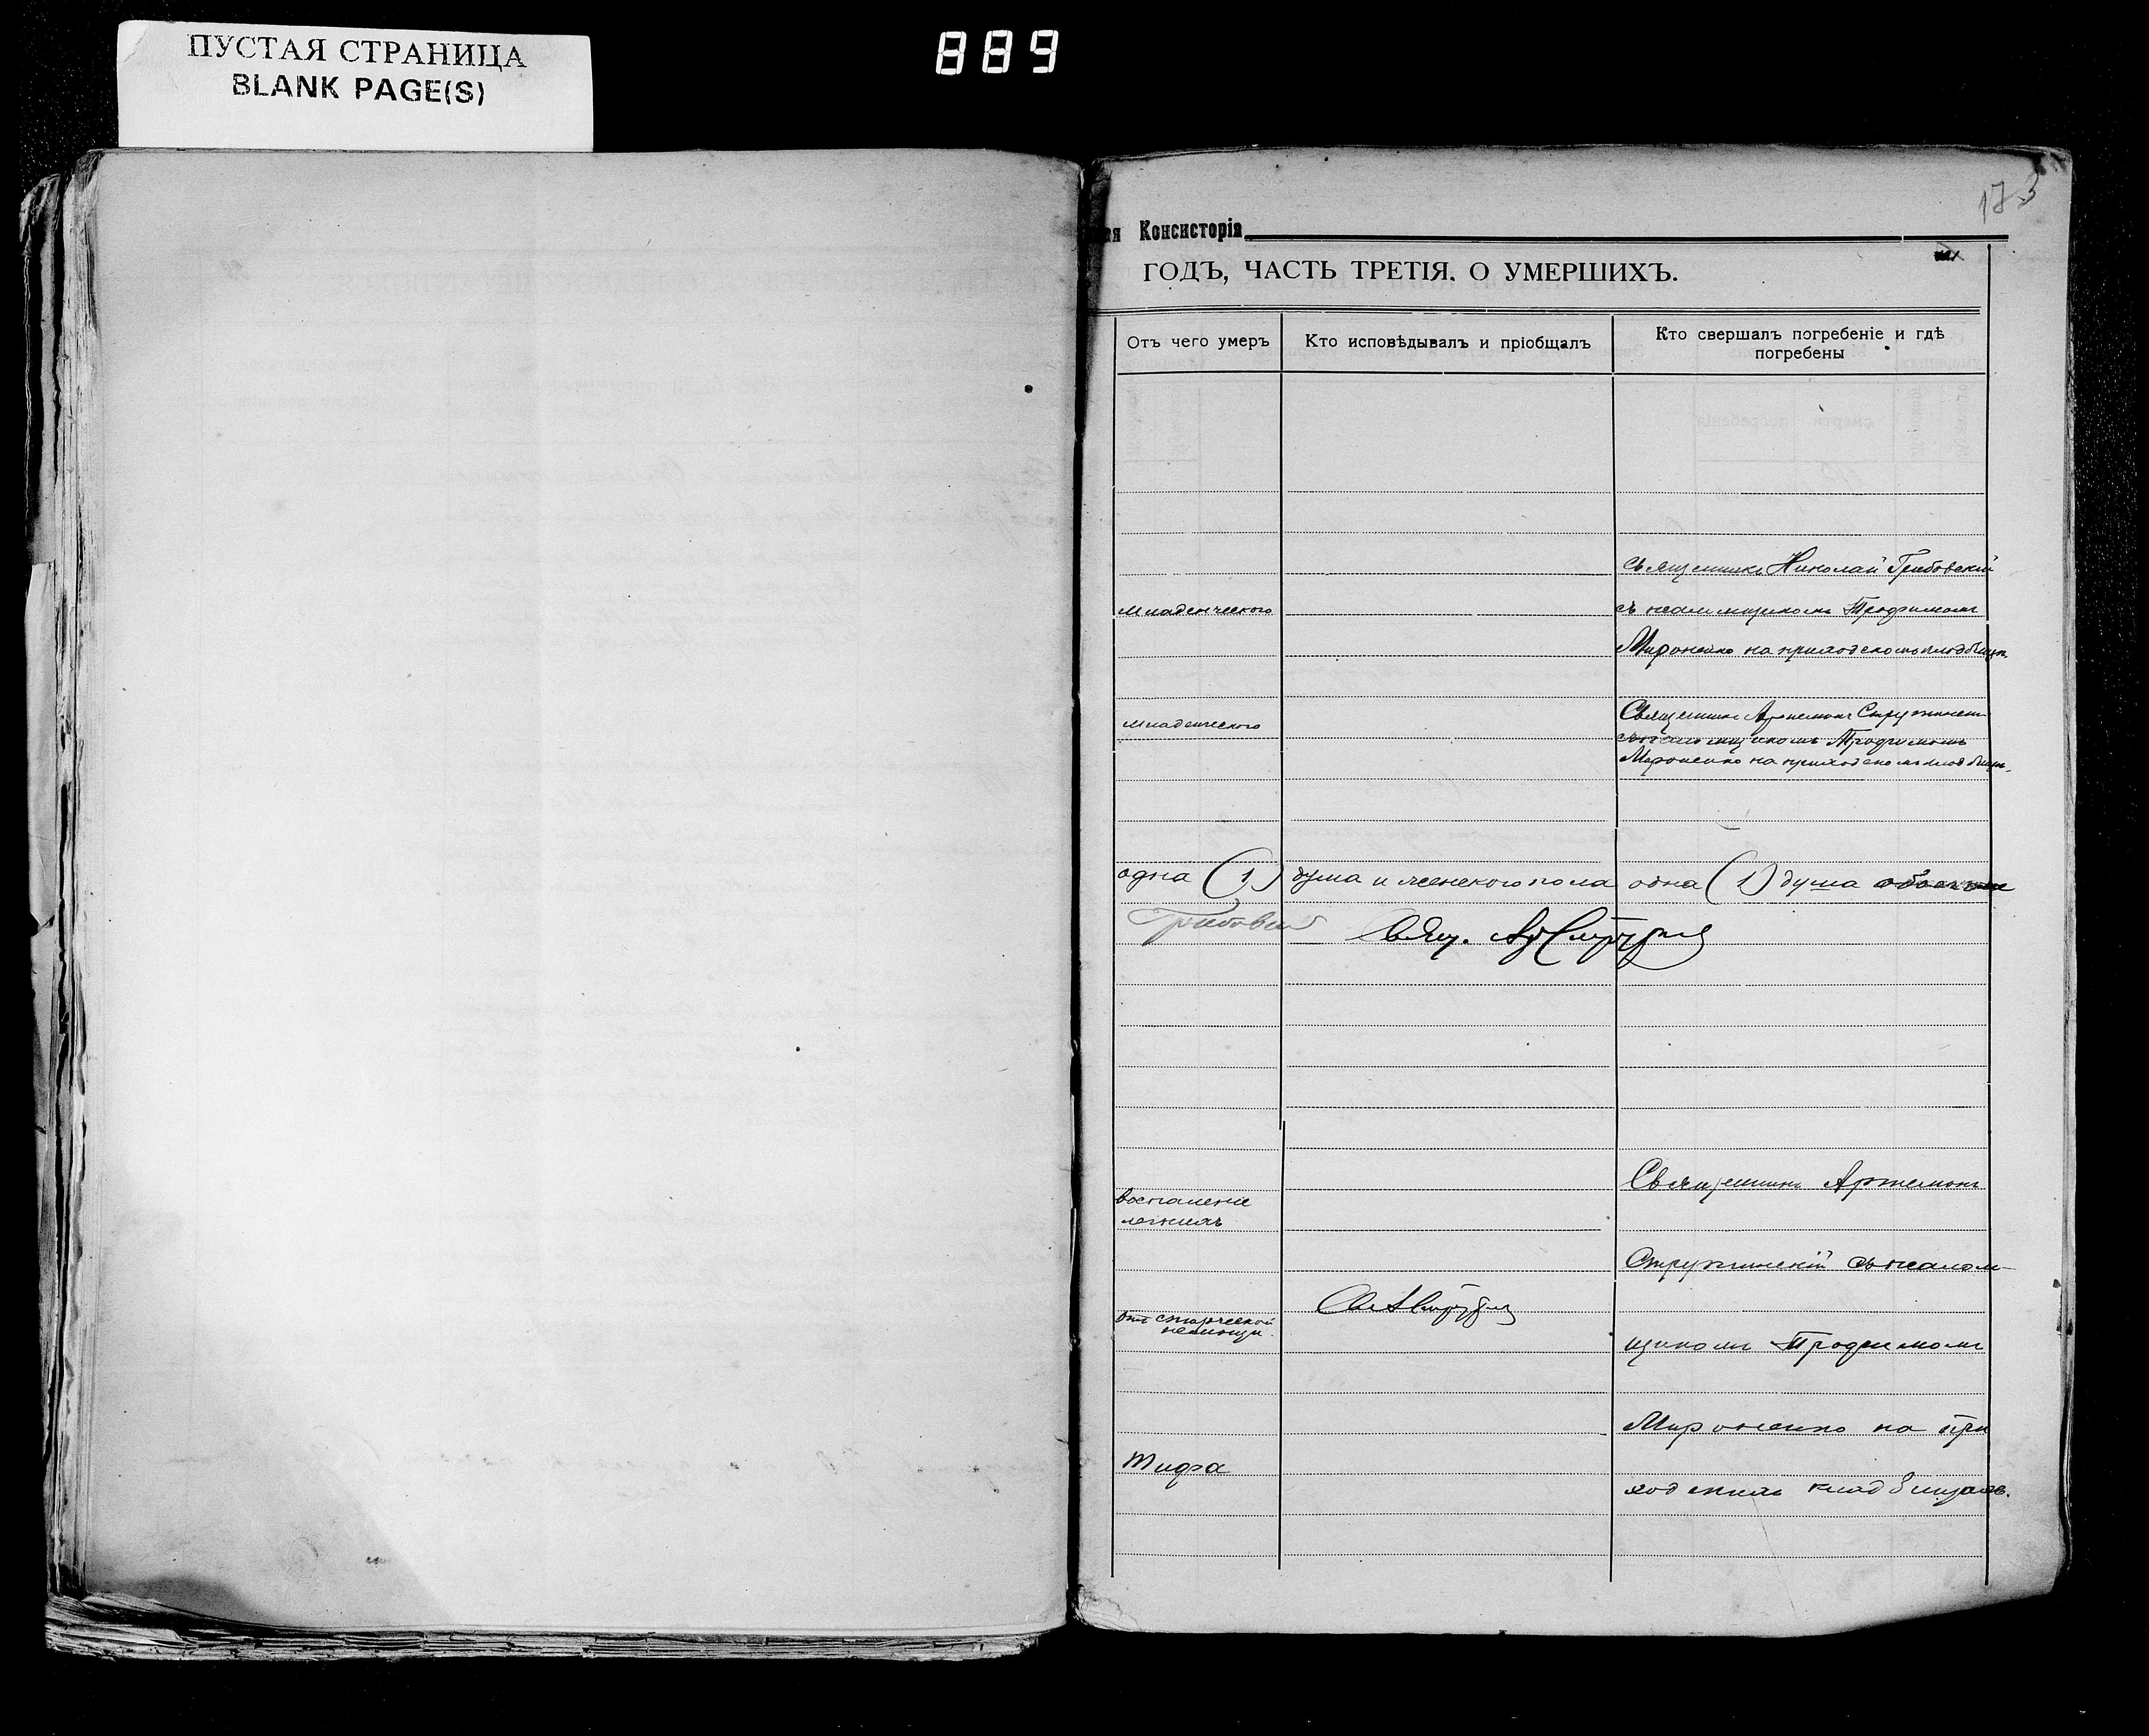 ПУСТАЯ СТРАНИЦА
BLANK PAGE(S)
889
173
ая Консисторія
ГОДЪ, ЧАСТЬ ТРЕТІЯ, О УМЕРШИХЪ.
Отъ чего умеръ
Кто исповѣдывалъ и пріобщалъ
Кто свершалъ погребеніе и гдѣ
погребены
Священникъ Николай Грибовскій
Младенческого
съ псаломщикомъ Трофимомъ
Мироненко на приходскомъ кладбищѣ
младенческого
Священник Артемонъ Стружинскі
съ псаломщикомъ Трофимомъ
Мироненко на приходскомъ кладбищѣ.
одна (1) душа и женского пола одна (1) душа
Грибовскі
Свящ. Ар Стружи
Священник Артемонъ
воспаленіе
легкихъ
Стружинскій съ псалом-
Св А Стружи
отъ старческой
немощи.
щикомъ Трофимомъ
Мироненко на при
Тифа
ходскихъ кладбищахъ.